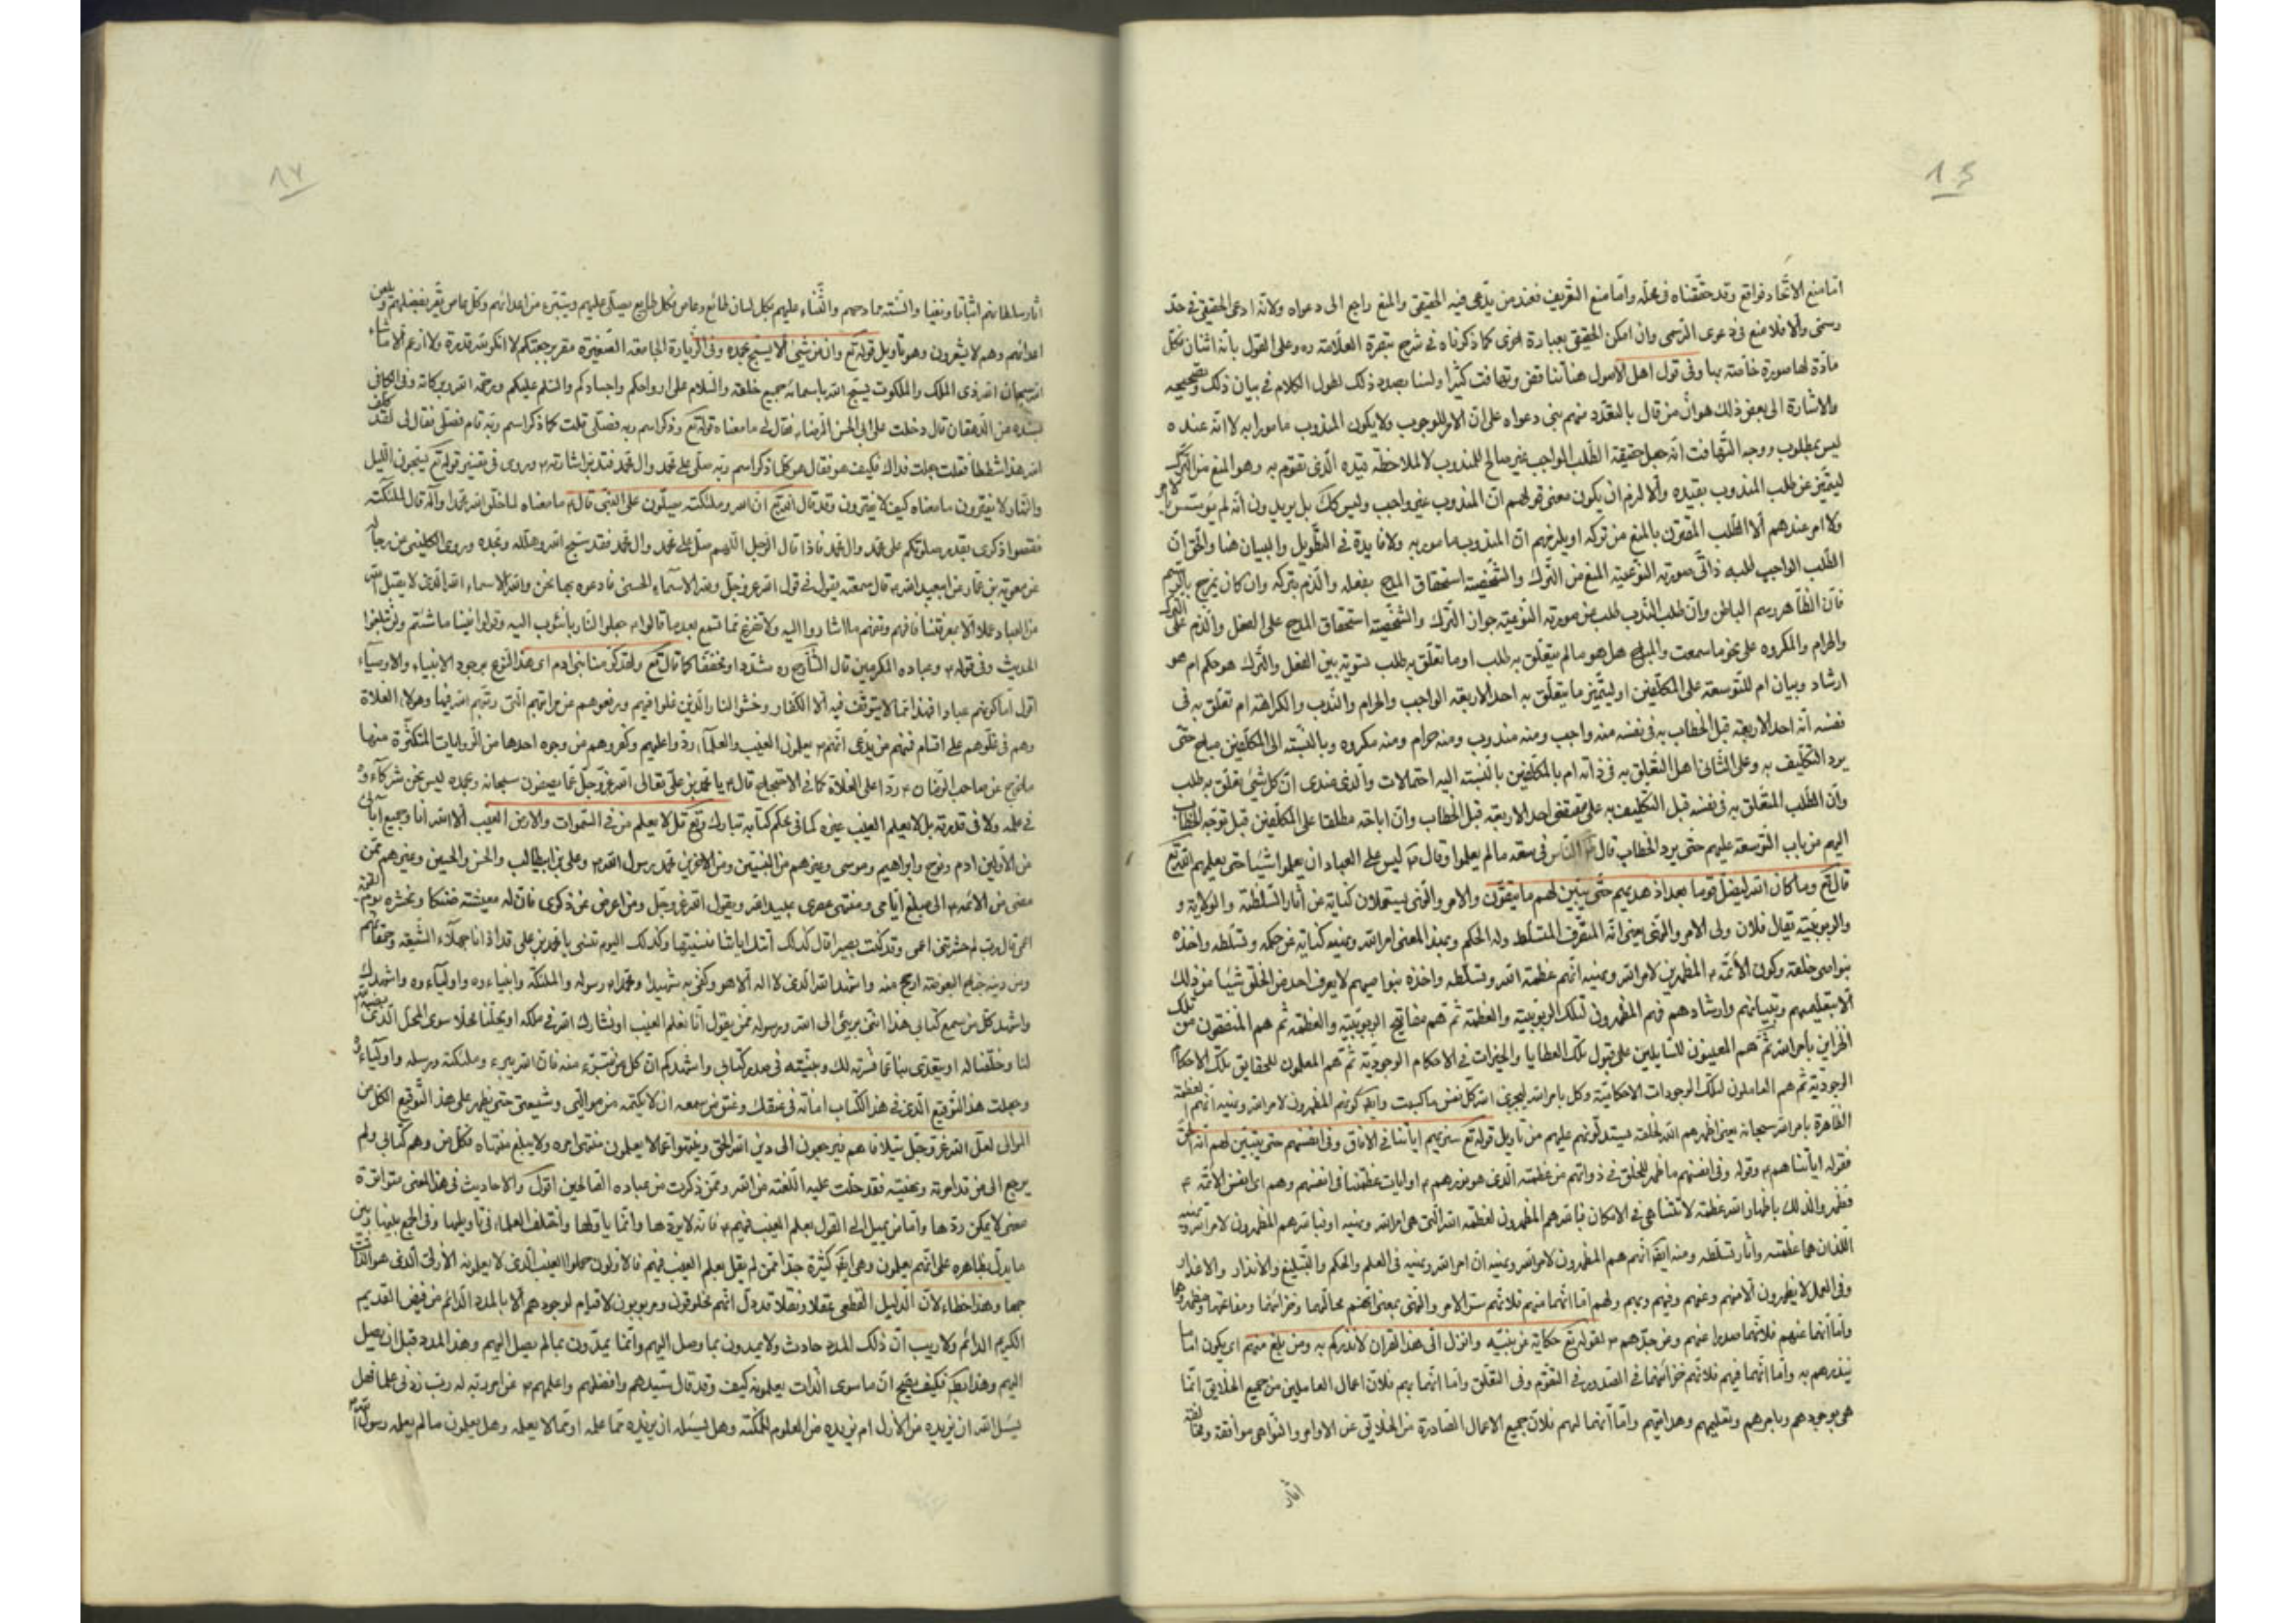 امّا منع الاتّحاد فواقع وقد حقّقناه فى محلّه وامّا منع التعريف فعند من يدّعى فيه الحقيقى والمنع راجع الى دعواه ولانّه ادعى الحقيقى فى حدّ
رسمى والّا فلا منع فى دعوى الرّسمى وان امكن الحقيقى بعبارة اخرى كما ذكرناه فى شرح تبصرة العلّامة ره وعلى القول بانّه اثنان فلكلّ
مادّة لها صورة خاصّة بها وفى قول اهل الاصول هنا تناقض وتهافت كثيرا ولسنا بصدد ذلك لطول الكلام فى بيان ذلك وتصحيحه
والاشارة الى بعض ذلك هو انّ من قال بالتعدّد منهم بنى دعواه على انّ الامر للوجوب ولا يكون المندوب مامورا به لانّه عنده
ليس بمطلوب ووجه التّهافت انّه جعل حقيقة الطّلب الواجب غير صالح للمندوب لا لملاحظة قيده الّذى تقوم به وهو المنع من التّرك
ليتميّز عن طلب المندوب بقيده والّا لزم ان يكون معنى قولهم انّ المندوب غير واجب وليس كك بل يريدون انّه لم يؤ
ولا امر عندهم الّا الطّلب المقترن بالمنع من تركه او يلزمهم انّ المندوب مامور به ولا فايدة فى التّطويل والبيان هنا والحقّ انّ
الطّلب الواجب لطلبه ذاتى صورته النّوعيّة المنع من التّرك والشّخصيّة استحقاق المدح بفعله والذّم بتركه وان كان يخرج بالرّسم
فانّ الظّاهر رسم الباطن وانّ طلب النّدب طلب من صورته النّوعيّة جواز التّرك والشّخصيّة استحقاق المدح على الفعل والذّم على التّرك
والحرام والمكروه على نحو ما سمعت والمباح هل هو ما لم يتعلّق به طلب او ما تعلّق به طلب تسوية بين الفعل والتّرك هو حكم ام هو
ارشاد وبيان ام للتّوسعة على المكلّفين او ليتميّز ما يتعلّق به احد الاربعة الواجب والحرام والنّدب والكراهة ام تعلّق به فى
نفسه انّه احد الاربعة قبل الخطاب به فى نفسه منه واجب ومنه مندوب ومنه حرام ومنه مكروه وبالنّسبة الى المكلّفين مباح حتّى
يرد التّكليف به وعلى الثّانى اهل التعلّق به فى ذاته ام بالمكلّفين بالنّسبة اليه احتمالات والّذى عندى انّ كلّ شئ تعلّق به طلب
وانّ الطّلب المتعلّق به فى نفسه قبل التّكليف به على مقتضى احد الاربعة قبل الخطاب وانّ اباحته مطلقا على المكلّفين قبل توجّه الخطاب
اليهم من باب التّوسعة عليهم حتّى يرد الخطاب قال النّاس فى سعة ما لم يعلموا وقال ع ليس على العباد ان يعلموا شيئا حتى يعلمهم الله تع
قال تع وما كان الله ليضلّ قوما بعد اذ هديهم حتّى يبيّن لهم ما يتّقون والامر والنّهى يستعملان كناية عن آثار السّلطنة والولاية و
والربوبيّة يقال فلان ولى الامر والنّهى يعنى انّه المتصرّف المتسلّط وله الحكم وبهذا المعنى امر الله ونهيه كناية عن حكمه وتسلّطه واخذه
بنواصى خلقه وكون الائمّة ع المظهرين لامر الله ونهيه انّهم عظمة الله وتسلّطه واخذه بنواصيهم لا يعرف احد من الخلق شيئا من ذلك
الّا بتعليمهم وتبيانهم وارشادهم فهم المظهرون لتلك الربوبيّة والعظمة ثم هم مفاتيح الربوبيّة والعظمة ثم هم المنفقون من تلك
الخزاين بامر الله ثمّ هم المعينون للسّايلين على قبول تلك العطايا والخيرات فى الاحكام الوجوديّة ثمّ هم المعلّمون للحقايق تلك الاحكام
الوجوديّة ثم هم العاملون لتلك الوجودات الاحكاميّة وكل بامر الله ليجزى الله كلّ نفس ما كسبت وايضا كونهم المظهرون لامر الله ونهيه انهم العظمة
الظّاهرة بامر الله سبحانه يعنى اظهرهم الله لخلقه ليستدلّوا بهم عليهم من تاويل قوله تع سنريهم اياتنا فى الافاق وفى انفسهم حتى يتبيّن لهم انّه الحقّ
فقوله اياتنا هم ع وقوله وفى انفسهم ما ظهر للخلق فى ذواتهم من عظمته الّذى هو نورهم ع او ايات عظمتنا فى انفسهم وهم اى انفس الائمّة ع
فظهر والذلك باظهار الله عظمة لا تتناهى فى الامكان فبالله هم المظهرون لعظمة الله الّتى هى امر الله ونهيه او فبالله هم المظهرون لامر الله ونهيه
اللّذان هما عظمته واثار تسلّطه ومنه ايضا انّهم هم المظهرون لامر الله ونهيه انّ امر الله ونهيه فى العلم والحكم والتّبليغ والانذار والاعذار
وفى العمل لا يظهرون الّا منهم وعنهم وفيهم وبهم ولهم امّا انّهما منهم فلانّهم سرّ الامر والنّهى بمعنى انّهم محالّهما وخزائنها ومفاتحها ومظهروها
وامّا انّهما عنهم فلانّهما صدرا عنهم وعن جدّهم ص لقوله تع حكاية عن نبيّه وانزل الىّ هذا القران لانذركم به ومن بلغ منهم اى يكون اماما
ينذرهم به وامّا انّهما فيهم فلانّهم خزائنها فى الصّدور فى التّقوّم وفى التّعلّق وامّا انّهما بهم فلانّ اعمال العاملين من جميع الخلايق انّما
هى بوجودهم وبامرهم وتعليمهم وهدايتهم وامّا انّهما لهم فلانّ جميع الاعمال الصّادرة من الخلايق عن الاوامر والنّواهى موافقة ومخالفة
آثار
اثار سلطانهم اثباتا ونفيا والسنة مادحهم والثّناء عليهم بكل لسان طائع وعاص فكل طايع يصلّى عليهم ويتبرّء من اعدائهم وكل عاص يقرّ بفضلهم ويلعن
اعدائهم وهم لا يشعرون وهو تاويل قوله تع وان من شئ الّا يسبّح بحمده وفى الزّيارة الجامعة الصّغيرة مقرّ برجعتكم لا انكر لله قدرة ولا ازعم الّا ما شاء
الله سبحان الله ذى الملك والملكوت يسبّح الله باسمائه جميع خلقه والسّلام على ارواحكم واجسادكم والسّلم عليكم ورحمة الله وبركاته وفى الكافى
بسنده عن الدّهقان قال دخلت على ابى الحسن الرضا ع فقال لى ما معناه قوله تع وذكر اسم ربه فصلّى قلت كلما ذكر اسم ربّه قام فصلّى فقال لى لقد كلّف
الله هذا شططا فقلت جعلت فداك فكيف هو فقال هو كلّما ذكر اسم ربّه صلّى على محمّد وال محمّد فتدبّر اشارته ع وروى فى تفسير قوله تع يسبّحون اللّيل
والنّهار لا يفترون ما معناه كيف لا يفترون وقد قال الله تع انّ الله وملئكته يصلّون على النّبى قال ع ما معناه لما خلق الله محمّدا واله قال للملئكة
نقصوا ذكرى بقدر صلوتكم على محمّد وال محمّد فاذا قال الرّجل اللّهم صلّ على محمّد وال محمّد فقد سبّح الله وهلّله وحمّده وروى الكلينى عن رجاله
عن معوية بن عمّار عن ابيعبد الله ع قال سمعته يقول فى قول الله عزّ وجلّ ولله الاسماء الحسنى فادعوه بها نحن والله الاسماء الله الّذى لا يقبل الله
من العباد عملا الّا بمعرفتنا فافهم وتفهّم ما اشاروا اليه ولا تفزع ممّا تسمع بعد ما قالوا ع اجعلوا لنا ربّا نئوب اليه وقولوا فينا ما شئتم ولن تبلغوا
الحديث وفى قوله ع وعباده المكرمين قال الشّارح ره مشدّدا ومخفّفا كما قال تع ولقد كرّمنا بنى ادم اى هذا النّوع بوجود الانبياء والاوصياء
اقول امّا كونهم عبادا فهذا ممّا لا يتوقّف فيه الّا الكفّار وخشوا النار والّذين غلوا فيهم ورفعوهم عن مراتبهم الّتى رتّبهم الله فيها وهولاء الغلاة
وهم فى غلوّهم على اقسام فمنهم من يدّعى انّهم ع يعلمون الغيب والعلماء ردّوا عليهم وكفّروهم من وجوه احدها من الرّوايات المتكثّرة منها
ما خرج عن صاحب الزّمان ع ردّا على الغلاة كما فى الاحتجاج قال ع يا محمّد بن علىّ تعالى الله عزّ وجلّ عمّا يصفون سبحانه وبحمده ليس نحن شركاء ه
فى علمه ولا فى قدرته بل لا يعلم الغيب غيره كما فى محكم كتابه تبارك وتع قل لا يعلم من فى السّموات والارض الغيب الّا الله وانا وجميع ابائى
من الاوّلين ادم ونوح وابراهيم وموسى وغيرهم من النّبيّين ومن الاخرين محمّد رسول الله ص وعلى بن ابيطالب والحسن والحسين وغيرهم ممّن
مضى من الائمّة ع الى مبلغ ايّامى ومنتهى عصرى عبيد الله ويقول الله عزّ وجلّ ومن اعرض عن ذكرى فانّ له معيشة ضنكا ونحشره يوم القيمة
اعمى قال ربّ لم حشرتنى اعمى وقد كنت بصيرا قال كذلك اتتك اياتنا فنسيتها وكذلك اليوم تنسى يا محمّد بن على قد اذانا جهلاء الشّيعة وحمقاؤهم
ومن دينه جناح البعوضة ارجح منه واشهد الله الّذى لا اله الّا هو وكفى به شهيدا ومحمّدا رسوله والملئكة وانبياءه واولياءه واشهدك
واشهد كلّ من سمع كتابى هذا انّنى برئ الى الله ورسوله ممّن يقول انّا نعلم الغيب او نشارك الله فى ملكه او يحلّنا محلّا سوى المحلّ الّذى رضيه الله
لنا وخلقنا له او يتعدّى بنا عمّا فسّرته لك وبيّنته فى صدر كتابى واشهدكم انّ كلّ من نتبرّء منه فانّ الله يبرء وملئكته ورسله واولياءه
وجعلت هذا التّوقيع الّذى فى هذا الكتاب امانة فى عنقك وعنق من سمعه ان لا يكتمه من موالىّ وشيعتى حتى يظهر على هذا التّوقيع الكلّ من
الموالى لعلّ الله عزّ وجلّ يتلافاهم فيرجعون الى دين الله الحقّ وينتهوا عمّا لا يعلمون منتهى امره ولا يبلغ منتهاه فكلّ من فهم كتابى ولم
يرجع الى من قد امرته ونهيته فقد حلّت عليه اللّعنة من الله وممّن ذكرت من عباده الصّالحين اقول والاحاديث فى هذا المعنى متواترة
معنى لا يمكن ردّها وامّا من يميل الى القول بعلم الغيب فيهم ع فانّه لا يردّها وانّما ياوّلها واختلف العلماء فى تاويلها وفى الجمع بينها وبين
ما يدلّ بظاهره على انّهم يعلمون وهى ايضا كثيرة جدّا فمن لم يقل بعلم الغيب فيهم فالاوّلون حملوا الغيب الّذى لا يعلمونه الاوّلى الّذى هو الذّات
جمعا وهذا خطاء لانّ الدّليل القطعى عقلا ونقلا قد دلّ انّهم مخلوقون ومربوبون لا قيام لوجودهم الّا بالمدد الدّائم من فيض القديم
الكريم الدائم ولا ريب انّ ذلك المدد حادث ولا يمدّون بما وصل اليهم وانّما يمدّون بما لم يصل اليهم وهذا المدد قبل ان يصل
اليهم وهذا فكيف يصحّ انّ ما سوى الّذات يعلمونه كيف وقد قال سيّدهم وافضلهم واعلمهم ص عن امر ربّه له ربّ زدنى علما فهل
يسئل الله ان يزيده من الازل ام يزيده من العلوم الممكنة وهل يسئله ان يزيده ممّا علمه او ممّا لا يعلمه وهل يعلمون ما لم يعلمه رسول الله